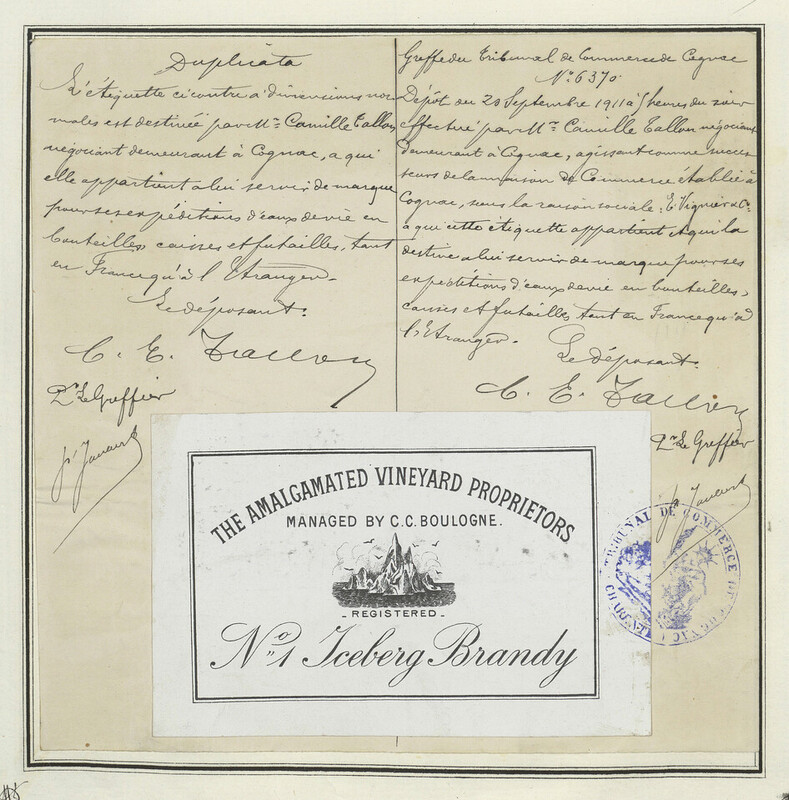 Duplicata
L'étiquette ci contre a dimensions nor
males est destinée par Mr. Camille Tallon
négociant demeurant à Cognac, a qui
elle appartient a lui servir de marque
pour ses expéditions d'eaux de vie en
bouteilles caisses et futailles, tant
en France qu'à l'Etranger.
Le déposant.
C. E. Tallon
Pr. Le Greffier
Greffe du Tribunal de Commerce de Cognac
No. 6370
Dépôt du 20 Septembre 1911 à 5 heures du soir
effectué par Mr. Camille Tallon négociant
demeurant à Cognac, agissant comme succes
seurs de la maison de Commerce établie à
Cognac, sous la raison sociale: E. Vignier & Co.
a qui cette étiquette appartient et qui la
destine a lui servir de marque pour ses
expéditions d'eaux de vie en bouteilles,
caisses et futailles tant en France qu'à
l'Etranger.
Le déposant.
C. E. Tallon
Pr. Le Greffier
THE AMALGAMATED VINEYARD PROPRIETORS
MANAGED BY C.C. BOULOGNE.
- REGISTERED -
No. 1 Iceberg Brandy
TRIBUNAL DE COMMERCE DE COGNAC
CHARENTE